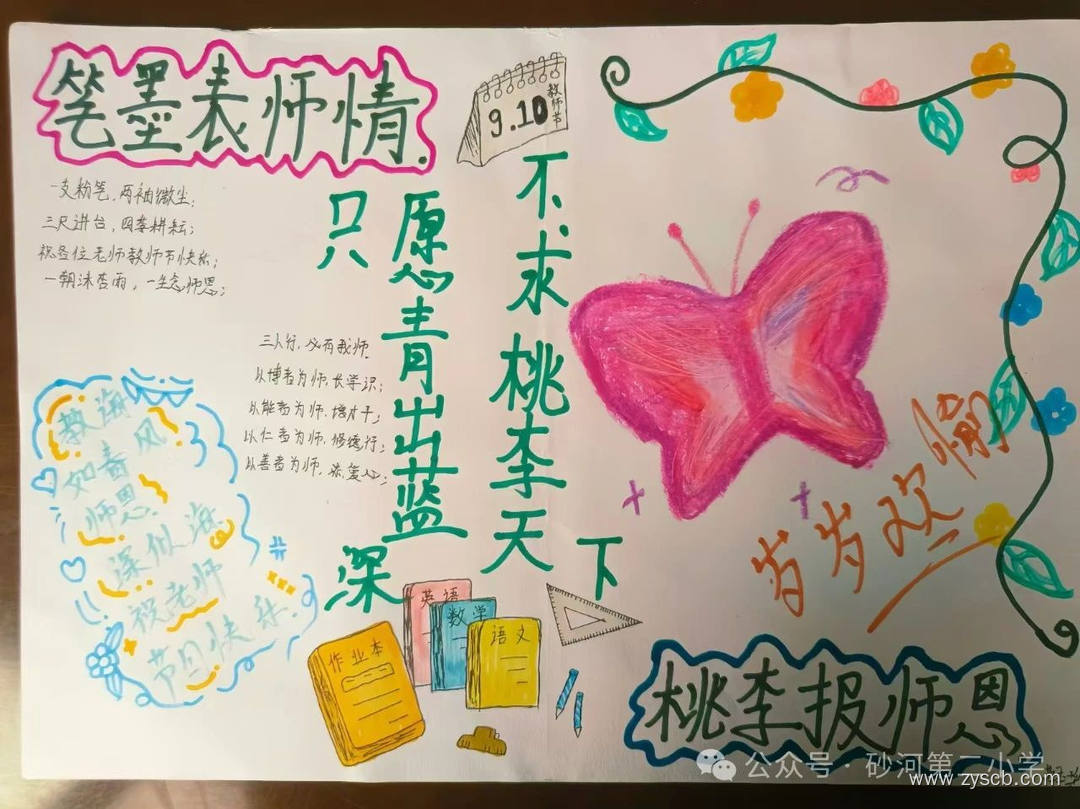 笔墨表师情
9.10
教师节
一支粉笔,两袖微尘;
三尺讲台,四季耕耘;
祝各位老师教师节快乐;
一朝沐杏雨,一生念师恩;
三人行,必有我师.
以博者为师,长学识;
以能者为师,增才干;
以仁者为师,修德行;
以善者为师,添爱心;
不求桃李天下
只愿青出蓝深
教诲
如春风
师恩
深似海
祝老师
节日快乐
英语
数学
语文
作业本
岁岁欢愉
桃李报师恩
公众号·砂河第二小学
www.zyscb.com